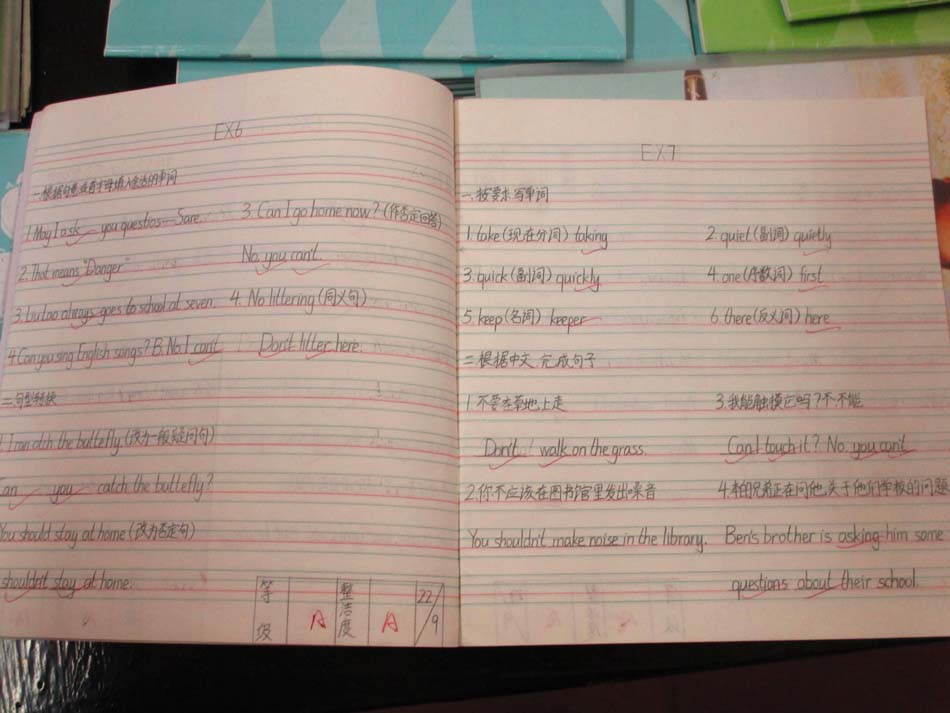 EX6
一.根据句意或首字母填入合适的单词
1. May I ask you questios — Sare.
2. That means "Danger"
3. always goes to school at seven.
4. Can you sing English songs? B. No. I can't
二.句型转换
1. I can catch the buttefly (改为一般疑问句)
Can you catch the buttefly?
You should stay at home (改为否定句)
shouldn't stay at home.
3. Can I go home now? (作否定回答)
No, you can't.
4. No littering (同义句)
Don't litter here.
等级 A 整洁度 A 22/9
EX7
一.按要求写单词
1. take (现在分词) taking
2. quiet (副词) quietly
3. quick (副词) quickly
4. one (序数词) first
5. keep (名词) keeper
6. there (反义词) here
二.根据中文,完成句子
1. 不要在草地上走
Don't walk on the grass.
2. 你不应该在图书馆里发出噪音
You shouldn't make noise in the library.
3. 我能触摸它吗?不,不能
Can I touch it? No, you can't
4. 本的兄弟正在问他关于他们学校的问题
Ben's brother is asking him some
questions about their school.